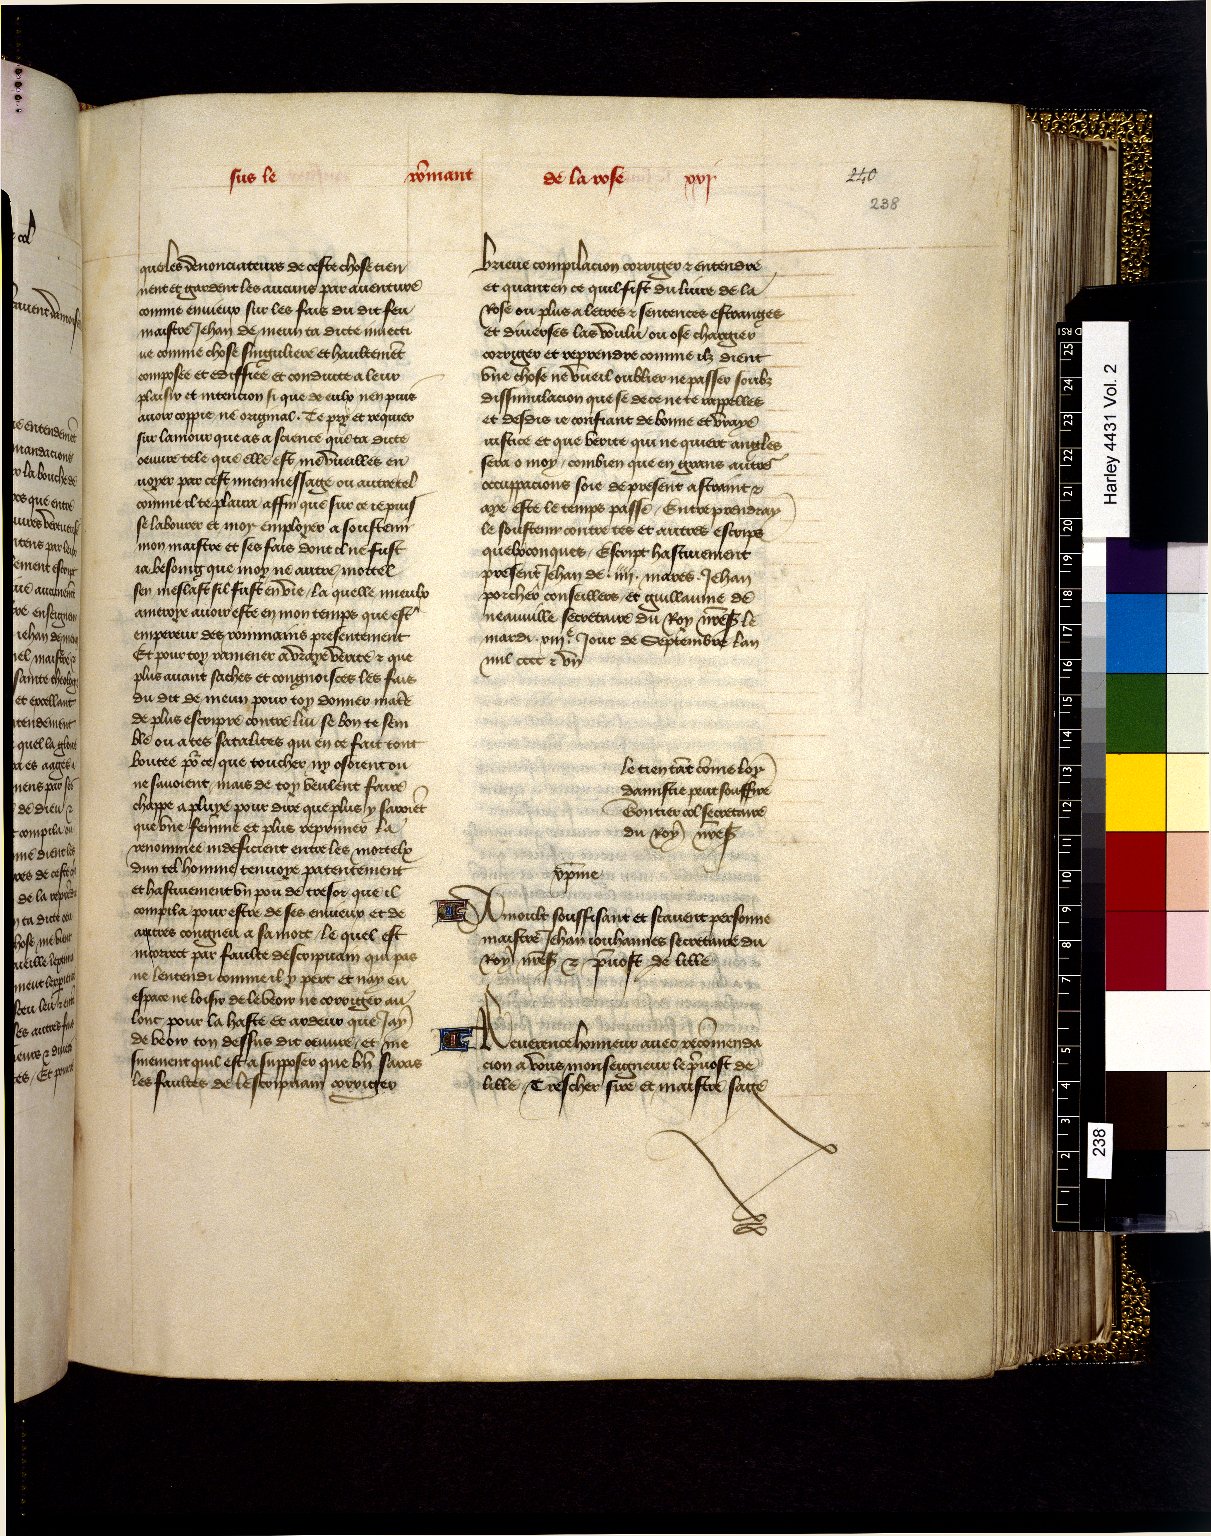 sus le rom̄ant de la rose xvj
240
238
que les denonciateurs de ceste chose tien
nent et gardent les aucuns par auenture
comme enuieux sur les fais du dit feu
maistre Jehan de meun ta dicte inuecti
ue comme chose singuliere et haultemēt
composee et ediffiee et conduite a leur
plaisir et intencion si que de eulx nen puis
auoir coppie ne original. Te pry et requier
sur lamour que as a science que ta dicte
oeuure tele que elle est me vueilles en
uoyer par cest mien message ou autre tel
comme il te plaira / affin que sur ce ie puis
se labourer et moy employer a soustenir
mon maistre et ses fais dont il ne fust
ia besoing que moy ne autre mortel
sen meslast sil fust en vie / la quelle mieulx
ameroye auoir este en mon temps que estr̄
empereur des rommains presentement
Et pour toy ramener a vraye verite ⁊ que
plus auant saches et congnoisces les fais
du dit de meun pour toy donner matē
de plus escripre contre lui se bon te sem
ble ou a tes satalites qui en ce fait tont
boutee pō ce que toucher ny osoient ou
ne sauoient / mais de toy veulent faire
chappe a pluye pour dire que plus y saroiēt
que vne fem̄me et plus reprimer la
renommee indeficient entre les mortelx
dun tel homme / tenuoye patentement
et hastiuement vn pou de tresor que il
compila pour estre de ses enuieux et de
autres congneu a sa mort / le quel est
incorrect par faulte descripuain qui pas
ne lentendi comme il y pert et nay eu
espace ne loisir de le veoir ne corriger au
lonc pour la haste et ardeur que Jay
de veoir ton dessus dit oeuure / et me
smement quil est a supposer que bn̄ saras
les faultes de lescripuain corriger
brieue compilacion corriger ⁊ entendre
et quant en ce quil fist du liure de la
Rose ou plus a letres ⁊ sentences estranges
et diuerses las voulu ou ose chargier
corriger et reprendre comme ilz dient
vne chose ne vueil oublier ne passer soubz
dissimulacion que se de ce ne te rappelles
et desdis ie confiant de bonne et vraye
iustice et que verite qui ne quiert angles
sera o moy / combien que en grans autrē
occuppacions soie de present astraint ⁊
aye este le temps passe / Entreprendray
le soustenir contre tes et autres escrips
quelxconques / Escript hastiuement
present Jehan de .iiij. mares. Jehan
porcher conseilliers et guillaume de
neauuille secretaire du Roy nr̄eS le
mardi .xiijᵉ Jour de Septembre lan
mil cccc ⁊ vn̄
le tien tāt cōme loy
damistie peut souffrir
Gontier col secretaire
du Roy nr̄eS
xp̄ine
A moult souffisant et scauent personne
maistre Jehan iouhannes secretaire du
Roy nr̄eS ⁊ p̄uost de lille
Reuerence honneur auec recōmenda
cion a vous monseigneur le p̄uost de
lille / Trescher sire et maistre sage
Harley 4431 Vol. 2
238
25
24
23
22
21
20
19
18
17
16
15
14
13
12
11
10
9
8
7
5
4
3
2